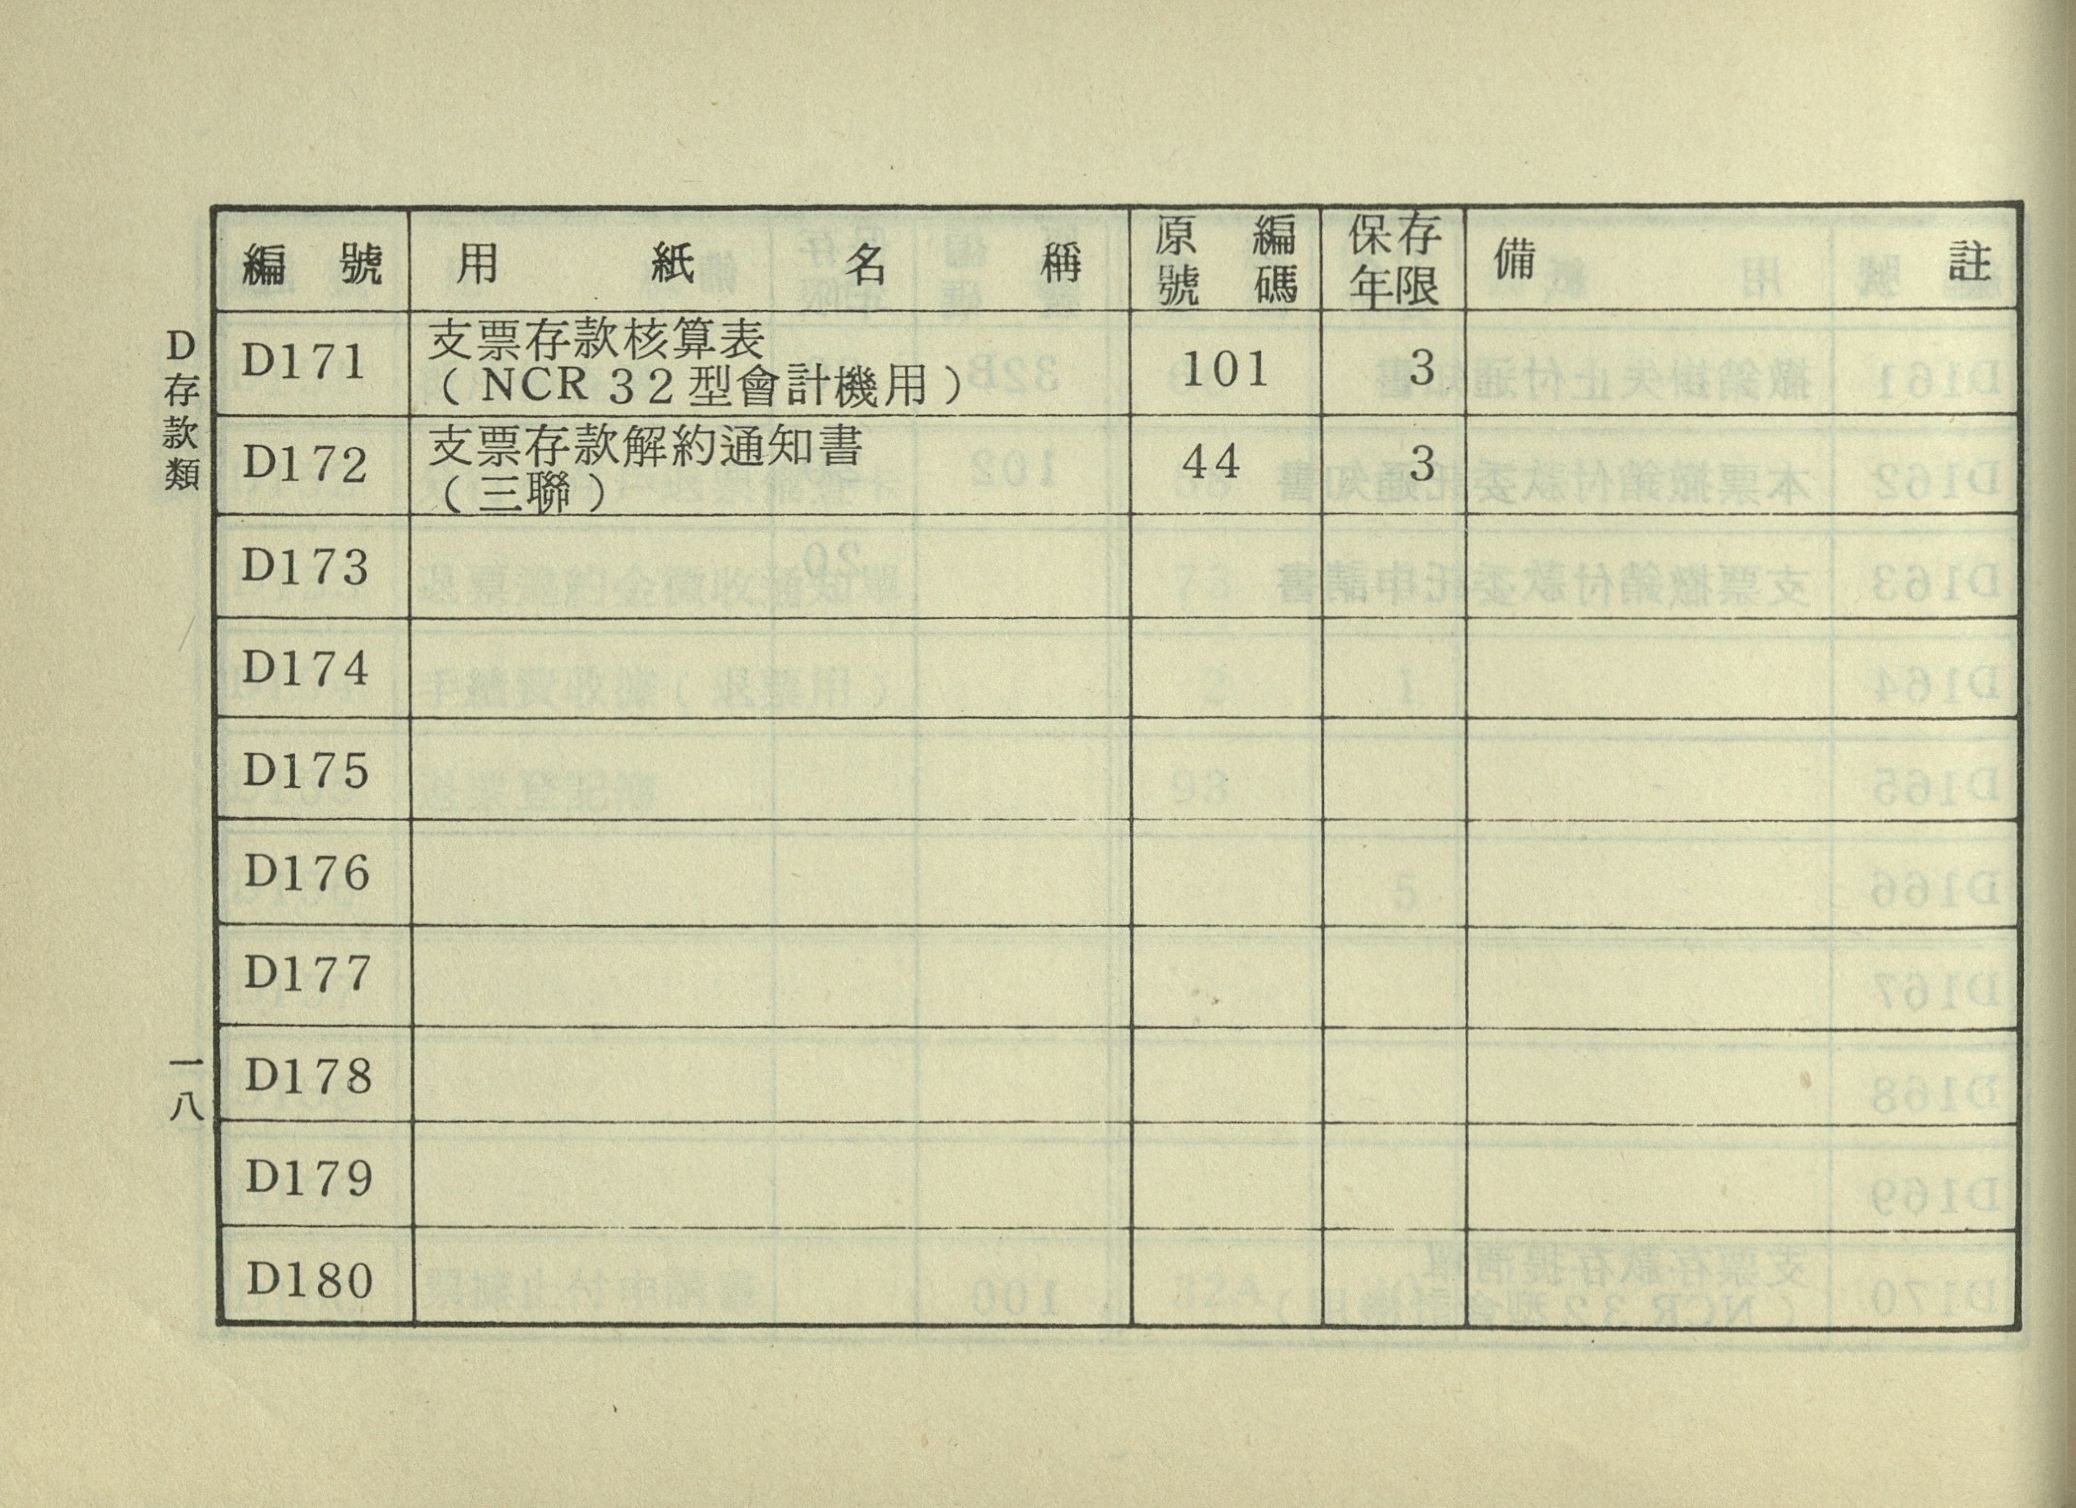 D存款類
一八
編號 用紙名稱 原編號碼 保存年限 備註
D171 支票存款核算表
(NCR 32型會計機用) 101 3
D172 支票存款解約通知書
(三聯) 44 3
D173
D174
D175
D176
D177
D178
D179
D180